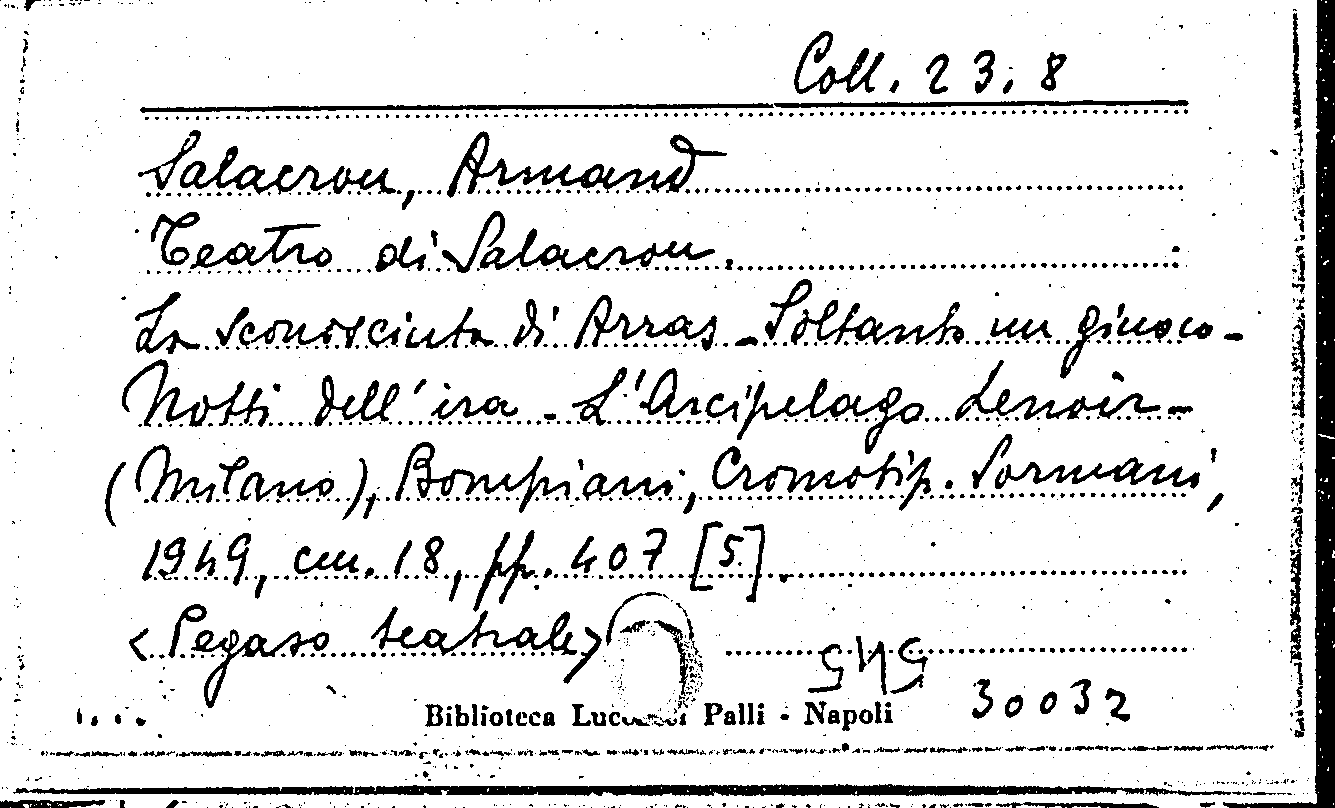 Coll. 23.8
Salacrou, Armand
Teatro di Salacrou.
La sconosciuta di Arras - Soltanto un giuoco -
Notti dell'ira - L'Arcipelago Lenoir -
(Milano), Bompiani, Cromotip. Sormani,
1949, cm. 18, pp. 407 [5].
<Pegaso teatrale>
30032
Biblioteca Palli - Napoli